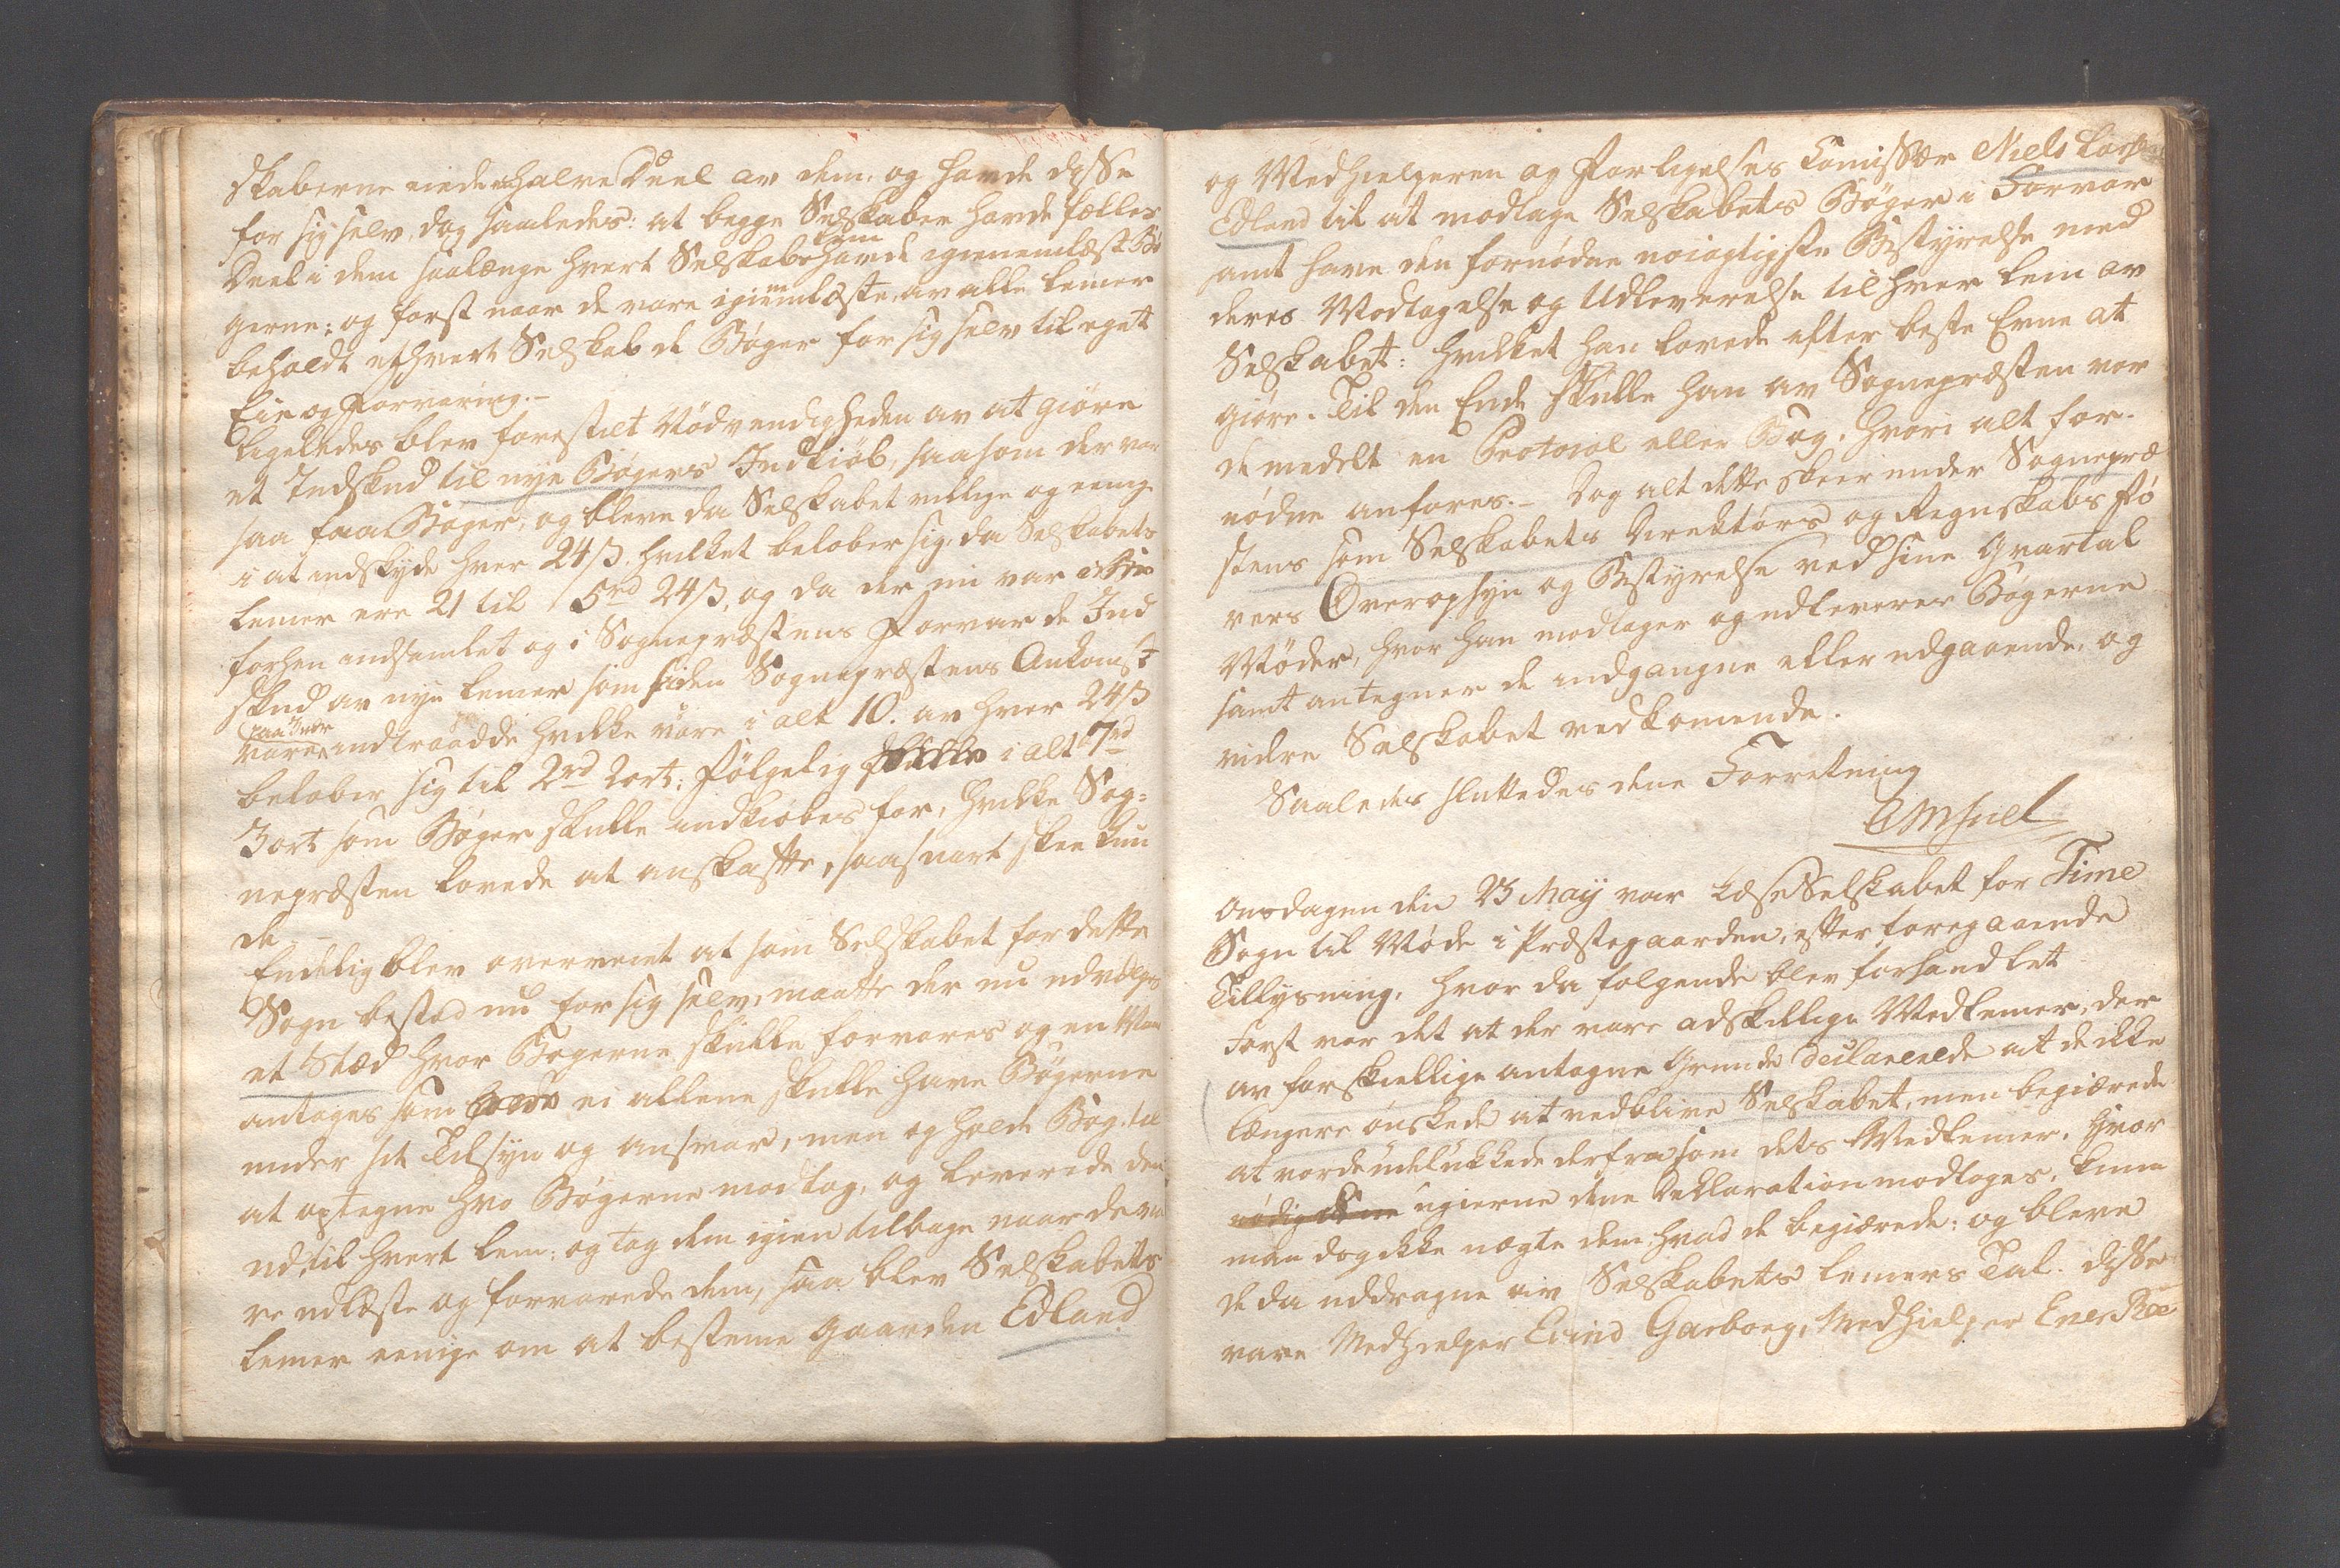 skaberne eiede halve Deel av dem, og havde disse
for sig selv, dog saaledes: at begge Selskaber havde fælles
Deel i dem saalænge hvert Selskabs Lem havde igiennemlæst Bø
gerne; og først naar de vare igiennemlæste av alle Lemer
beholdt ethvert Selskab de Bøger for sig selv til eget
Eie og Forvaring.-
Ligeledes blev forestilt Nödvendigheden av at giöre
et Indskud til nye Bögers Indkiöb, saasom der var
saa faa Böger, og bleve da Selskabet villige og eenige
i at indskyde hver 24 ß. hvilket beløber sig, da Selskabets
Lemer ere 21 til 5rd 24ß, og da der nu var
forhen indsamlet og i Sognepræstens Forvar de Ind
skud av nye Lemer som siden Sognepræstens Ankomst
vare indtraadde hvilke vare i alt 10. av hver 24ß
beløber sig til 2rd 2ort; følgelig i alt 7rd
3ort som Böger skulle indkiøbes for, hvilke Sog-
nepræsten lovede at anskaffe, saasnart skee kun
de -
Endelig blev overveiet at som Selskabet for dette
Sogn bestod nu for sig selv, maatte der nu udvælges
et Stæd hvor Bögerne skulle forvares og en Man
antages som ei allene skulle have Bögerne
under sit Tilsyn og Ansvar, men og holde Bog til
at optegne hvo Bögerne modtog, og leverede dem
ud til hvert Lem; og tog dem igien tilbage naar de va
re udlæste og forvarede dem, saa blev Selskabets
Lemer eenige om at bestemme Gaarden Edland
og Medhielperen og Forligelses Comissær Niels Larsen
Edland til at modtage Selskabets Böger i Forvar
samt have den fornødne nöiagtigste Bestyrelse med
deres Modtagelse og Udleverelse til hver Lem av
Selskabet: hvilket han lovede efter beste Evne at
giöre. Til den Ende skulle han av Sognepræsten vor
de meddelt en Protocol eller Bog, hvori alt for-
nödne anføres.- Dog alt dette skeer under Sognepræ
stens som Selskabets Direktörs og Regnskabs Fö
rers Overopsyn og Bestyrelse ved sine Qvartal
Möder, hvor han modtager og udleverer Bögerne
samt antegner de indgangne eller udgaaende, og
videre Selskabet vedkomende.
Saaledes sluttedes denne Forretning
Onsdagen den 23 May var Læse Selskabet for Time
Sogn til Möde i Præstegaarden, efter foregaaende
Tillysning, hvor da følgende blev forhandlet
Først var det at der vare adskillige Medlemer, der
av forskiellige antagne Grunde declarerede at de ikke
længere önskede at vedblive Selskabet, men begiærede
at vorde udelukkede derfra som dets Medlemer. Hvor
ugierne denne Declaration modtoges, kunne
man dog ikke nægte dem hvad de begiærede: og bleve
de da uddragne av Selskabets Lemers Tal. disse
vare Medhielper Eivind Garborg, Medhielper Ener Bøe